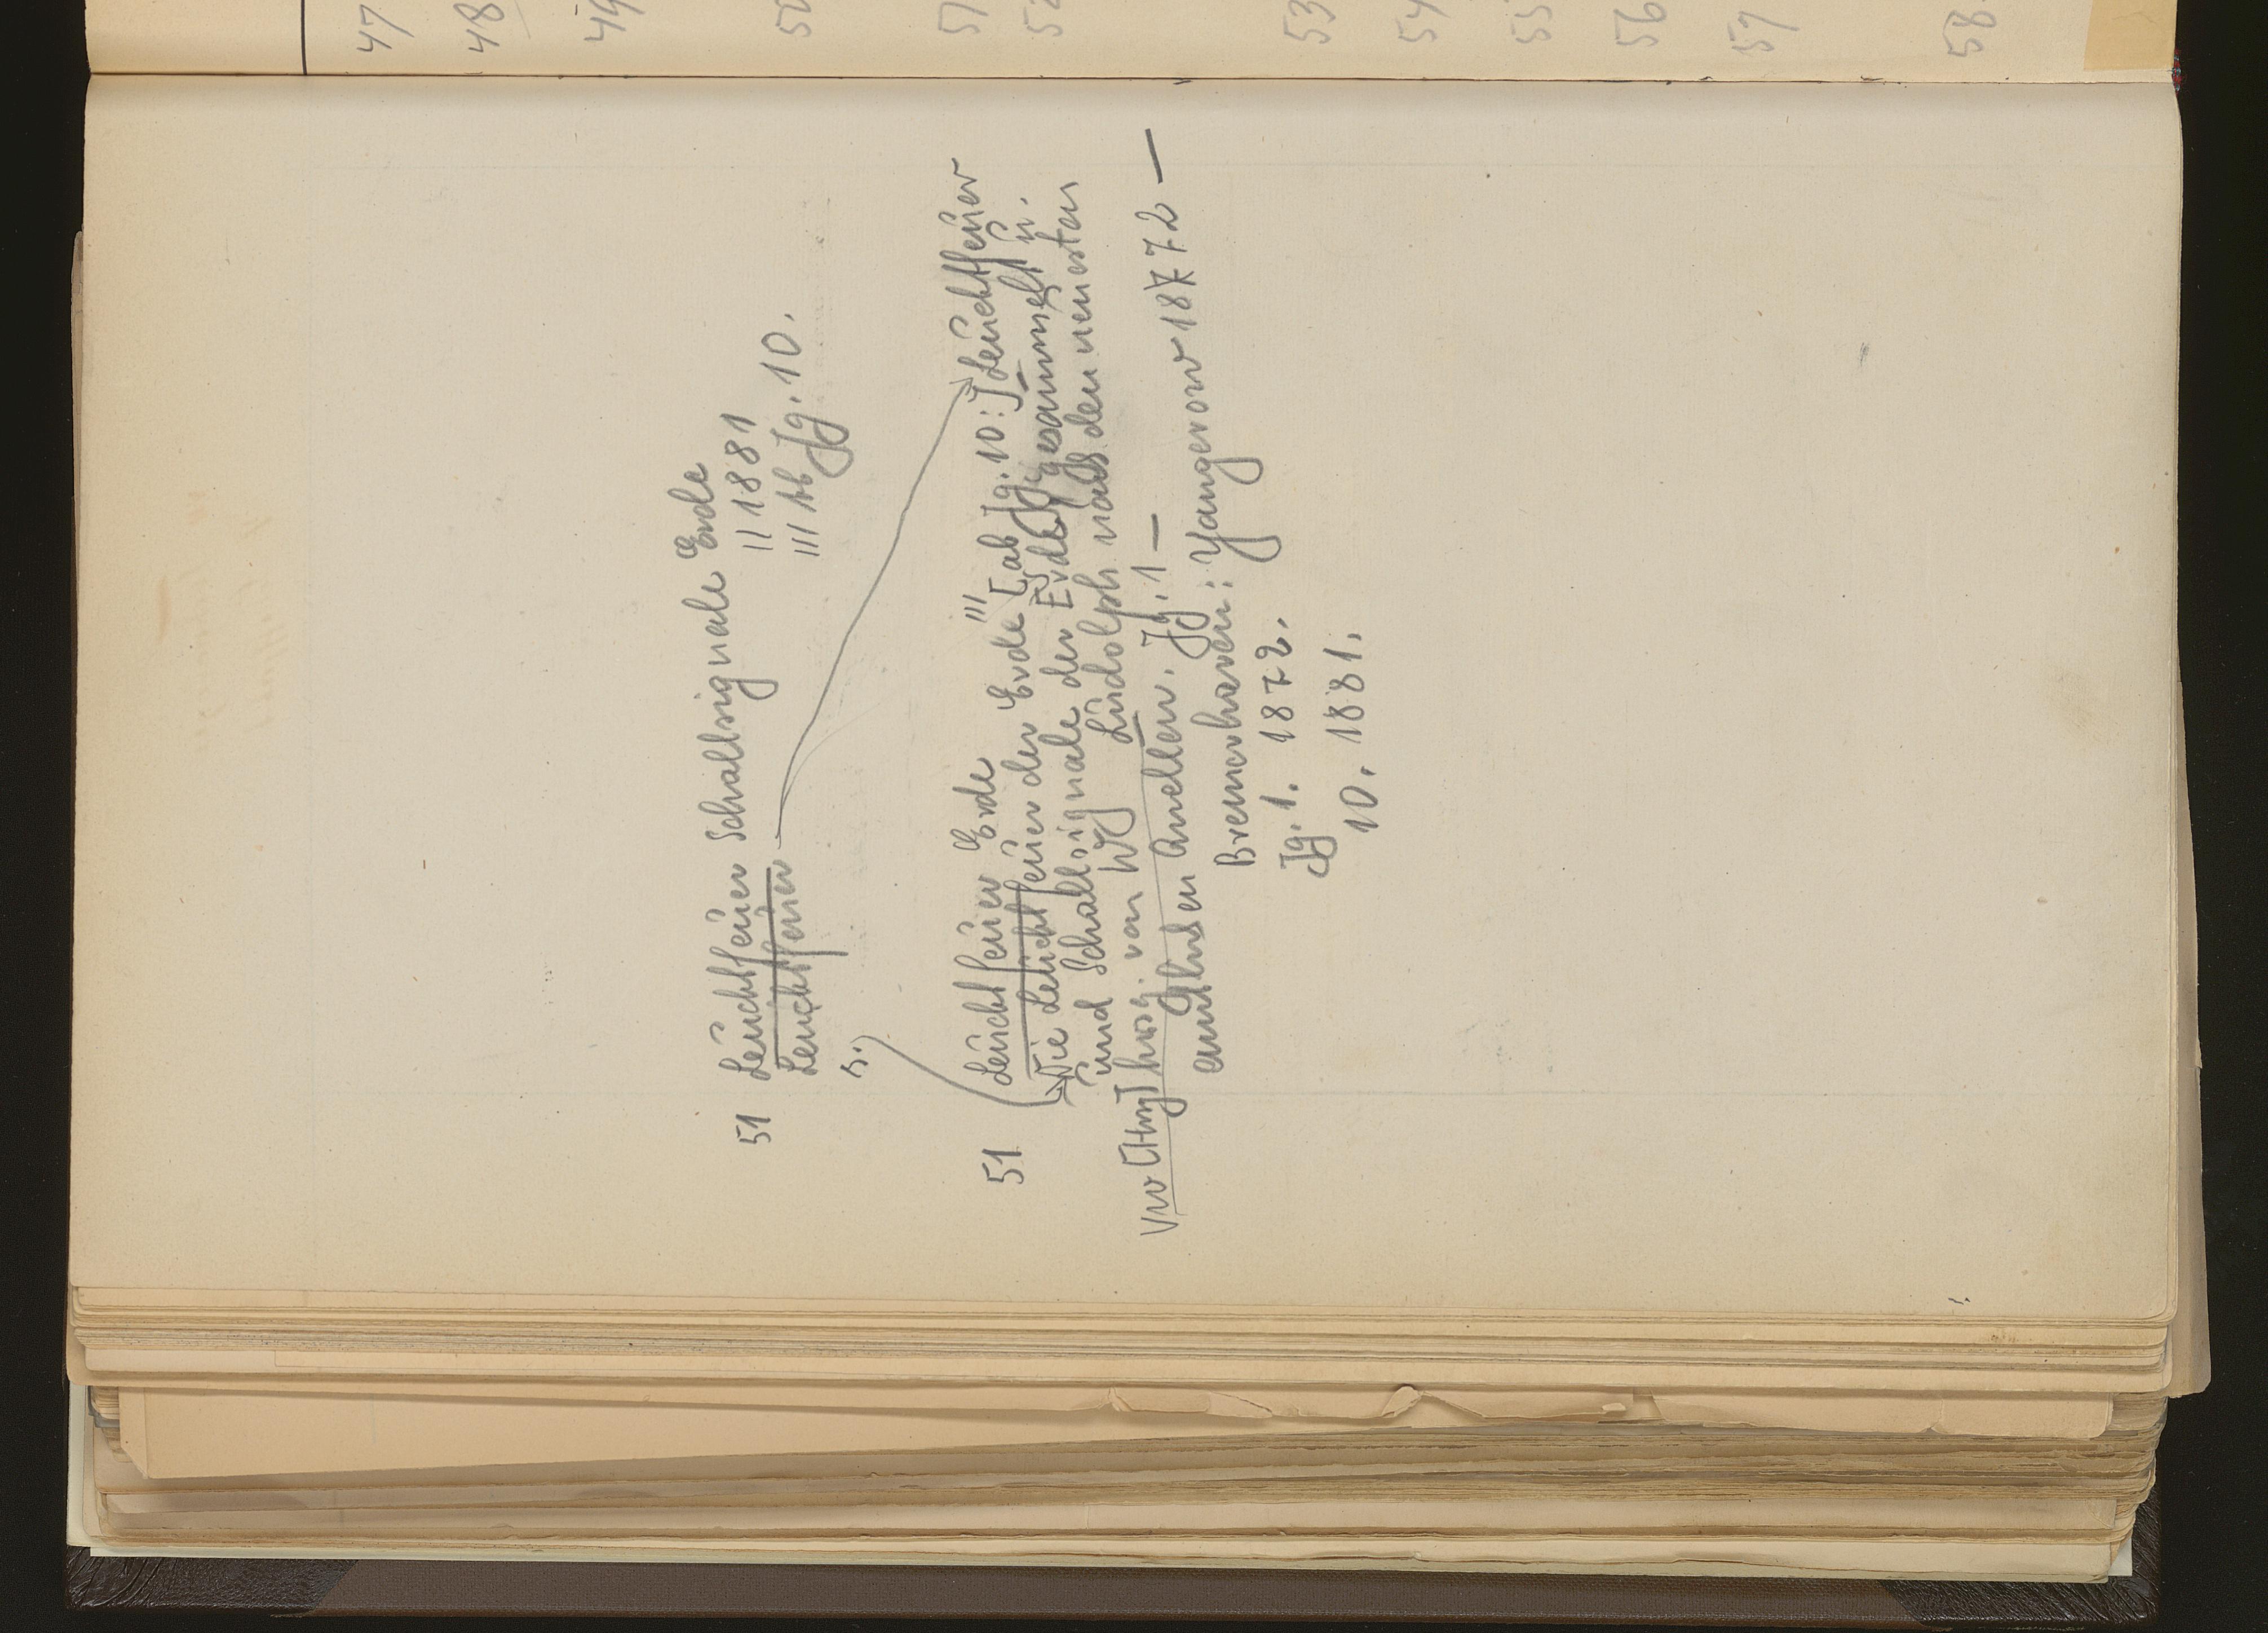 47
48
49
50
51
52
53
54
55
56
57
58
51 Leuchtfeuer Schallsignale Erde
Leuchtfeuer
II 1881
III Ab Jg. 10.
s.
51 Leuchtfeuer Erde
III
Die Leuchtfeuer der Erde [ab Jg. 10:] Leuchtfeuer
und Schallsignale der Erde] gesammelt u.
hrsg. von W Ludolph nach den neuesten
amtlichen Quellen. Jg. 1 —
Bremerhaven: Vangerow 1872 —
Jg. 1. 1872.
10. 1881.